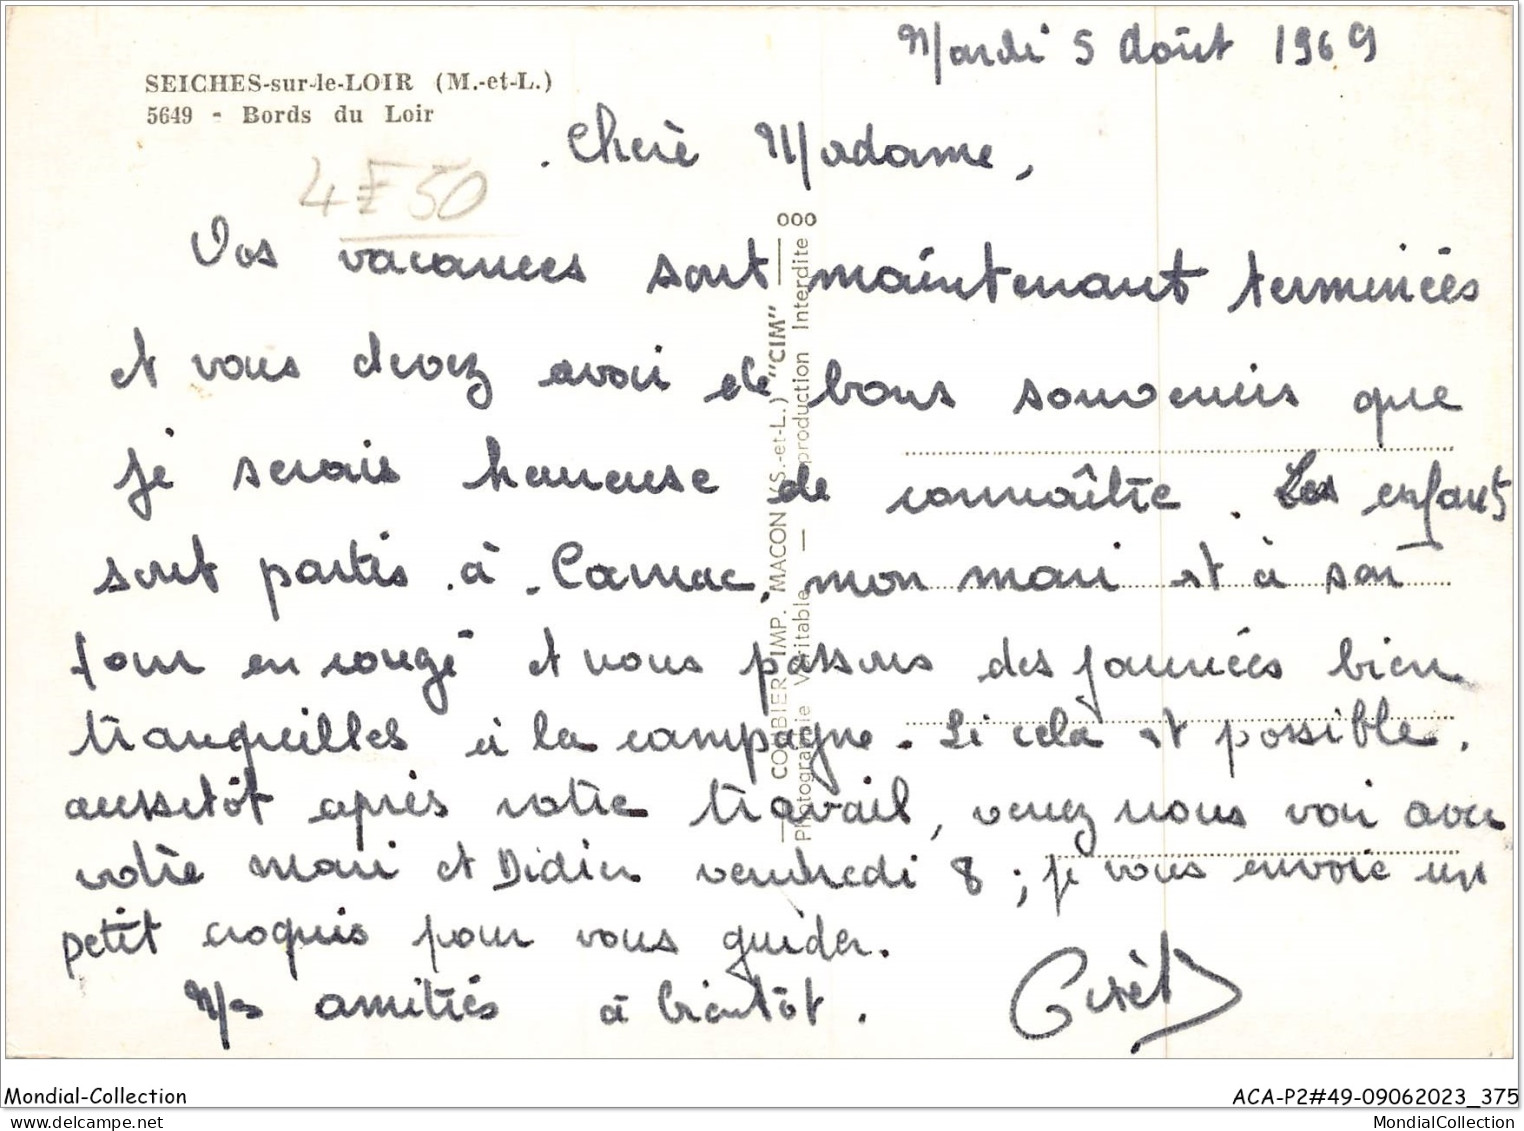 Mardi 5 Août 1969
SEICHES-sur-le-LOIR (M.-et-L.)
5649 - Bords du Loir
4F50
Chère Madame,
Vos vacances sont maintenant terminées
et vous devez avoir de bons souvenirs que
je serais heureuse de connaître. Les enfants
sont partis à Carnac, mon mari est à son
tour en congé et nous passons des journées bien
tranquilles à la campagne. Si cela est possible,
aussitôt après votre travail, venez nous voir avec
votre mari et Didier vendredi 8 ; je vous envoie un
petit croquis pour vous guider.
Mes amitiés à bientôt.
COMBIER IMP. MACON (S.-et-L.) "CIM"
Photographie Véritable — Reproduction Interdite
000
Mondial-Collection
ACA-P2#49-09062023_375
www.delcampe.net
MondialCollection